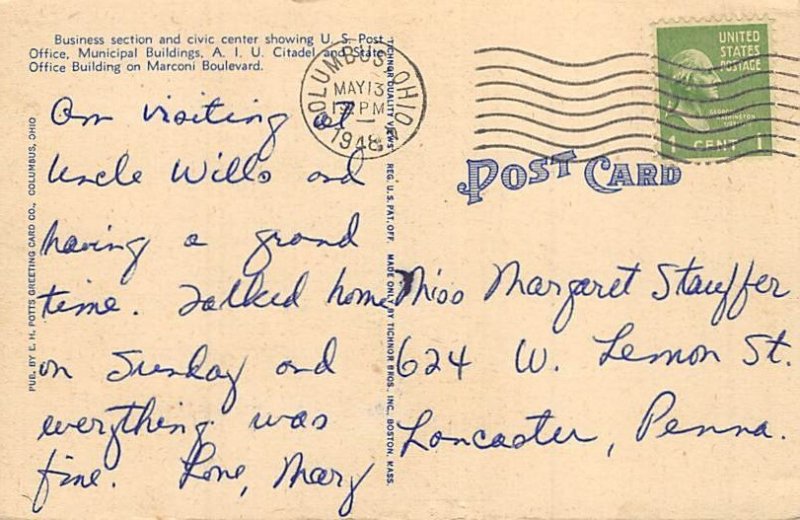 Business section and civic center showing U. S. Post
Office, Municipal Buildings, A. I. U. Citadel and State
Office Building on Marconi Boulevard.
Am visiting at
Uncle Wills and
having a grand
time. Talked home
on Sunday and
everything was
fine. Love, Mary
PUB. BY E. H. POTTS GREETING CARD CO., COLUMBUS, OHIO
TICHNOR QUALITY VIEWS REG. U. S. PAT. OFF. MADE ONLY BY TICHNOR BROS. INC., BOSTON, MASS.
COLUMBUS, OHIO
MAY 13
PM
1948
UNITED
STATES
POSTAGE
GEORGE
WASHINGTON
1 CENT 1
POST CARD
Miss Margaret Stauffer
624 W. Lemon St.
Lancaster, Penna.